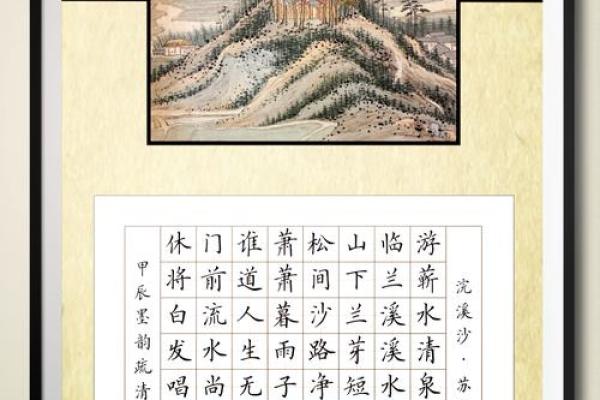 浣溪沙·苏
游蕲水清泉
临兰溪溪水
山下兰芽短
松间沙路净
萧萧暮雨子
谁道人生无
门前流水尚
休将白发唱
甲辰墨韵疏清